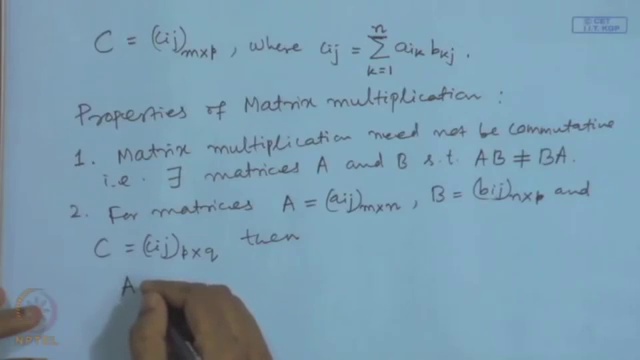 © CET
I.I.T. KGP
C = (cij)m×p, where cij = n∑k=1 aik bkj.
Properties of Matrix multiplication :
1. Matrix multiplication need not be commutative
i.e. ∃ matrices A and B s.t. AB ≠ BA.
2. For matrices A = (aij)m×n, B = (bij)n×p and
C = (cij)p×q then
A
NPTEL